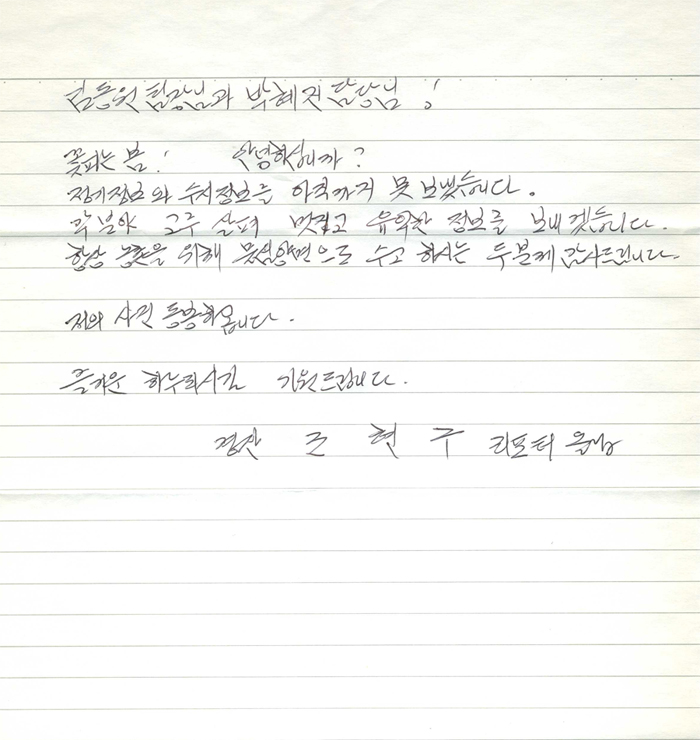 김동원 팀장님과 박혜진 담당님!
꽃피는 봄! 안녕하십니까?
정기정보와 수시정보를 아직까지 못 보냈습니다.
각 분야 고루 살펴 멋질고 유익한 정보를 보내겠습니다.
항상 농촌을 위해 물심양면으로 수고 하시는 두분께 감사드립니다.
저의 사진 동봉하옵니다.
즐거운 하누되시길 기원드립니다.
경산 조 현 구 리포터 올림